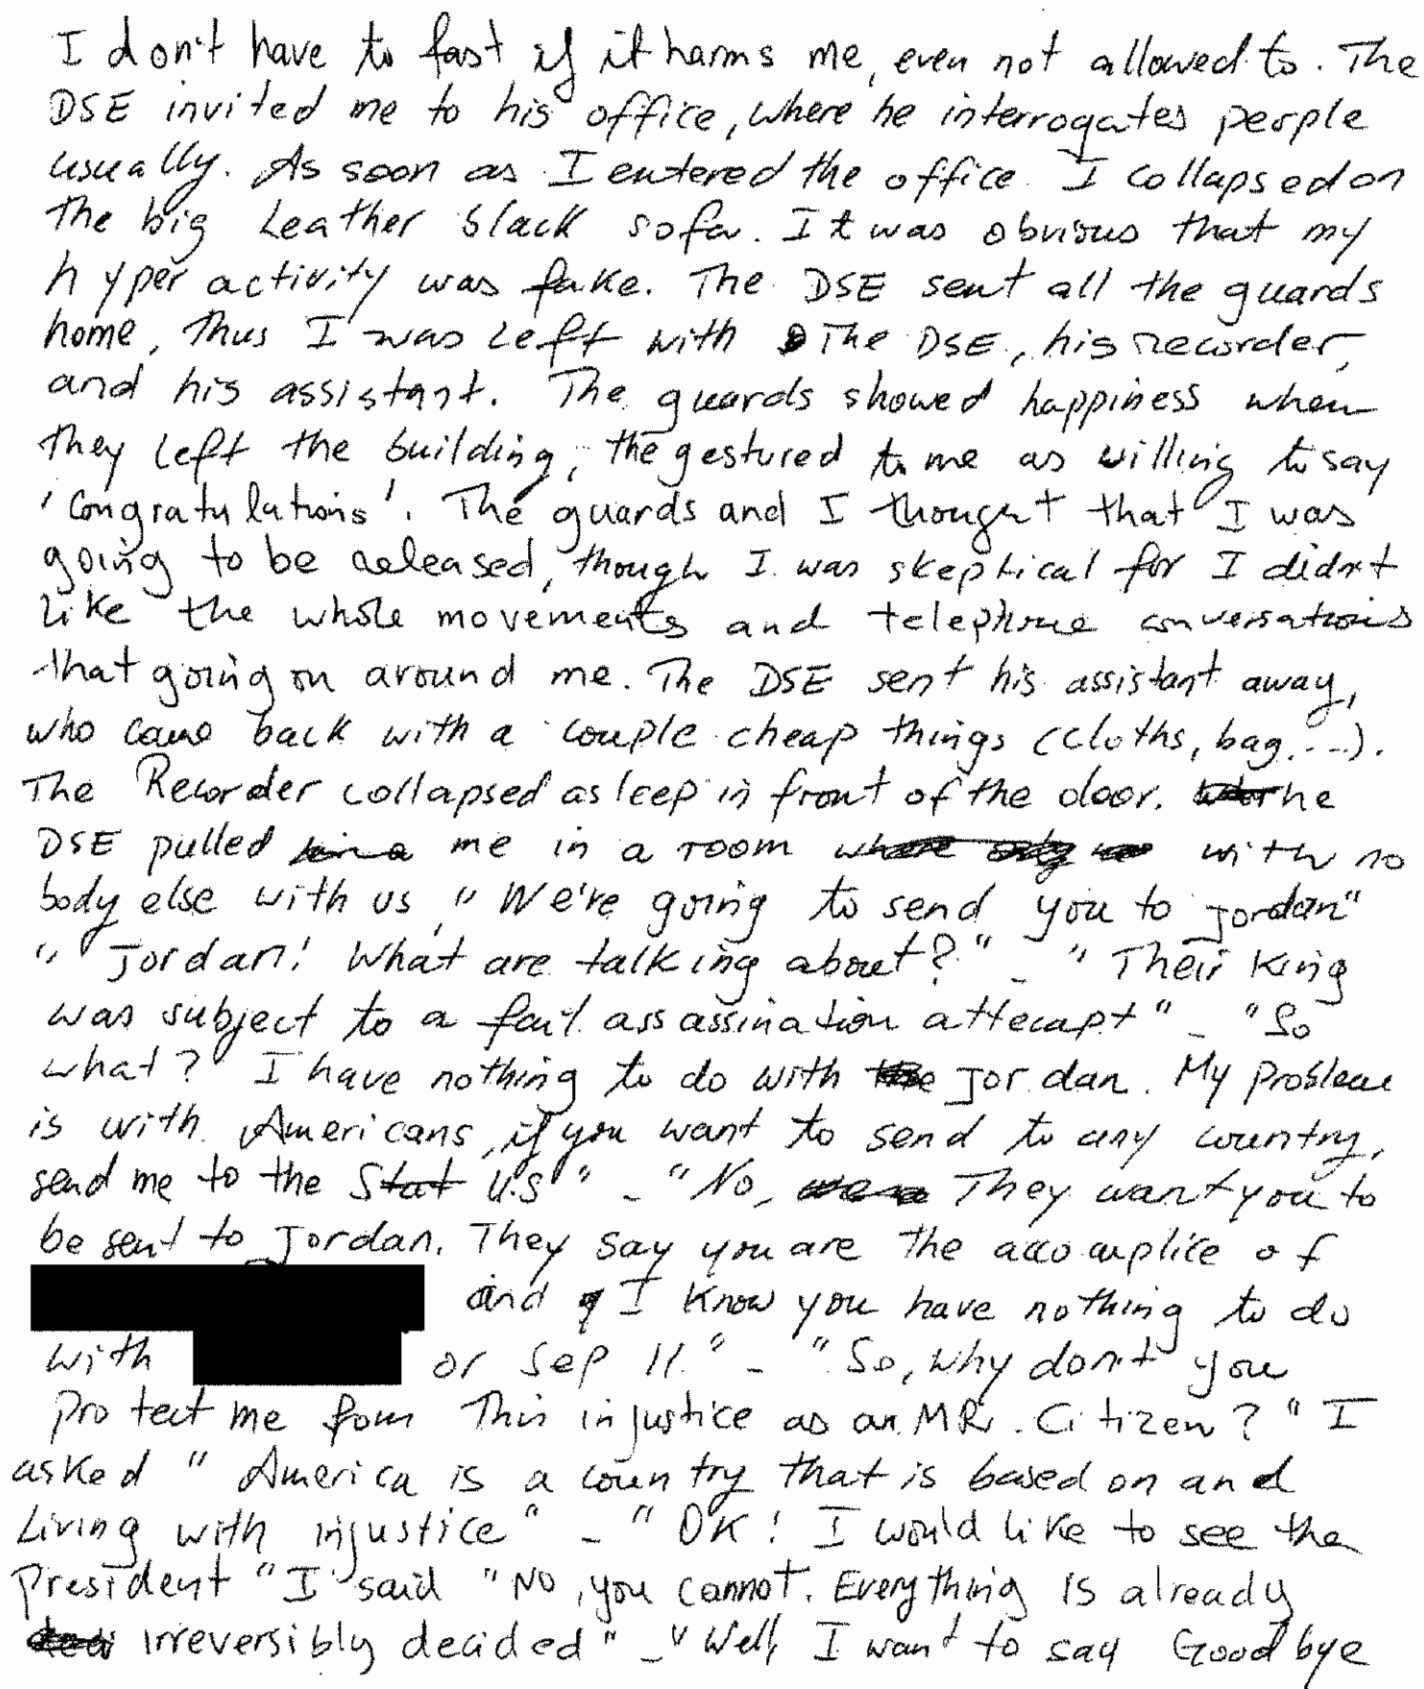 I don't have to fast if it harms me, even not allowed to. The
DSE invited me to his office, where he interrogates people
usually. As soon as I entered the office I collapsed on
the big Leather black sofa. It was obvious that my
hyper activity was fake. The DSE sent all the guards
home, thus I was Left with The DSE, his recorder,
and his assistant. The guards showed happiness when
they left the building, the gestured to me as willing to say
'Congratulations'. The guards and I thought that I was
going to be released, though I was skeptical for I didn't
like the whole movements and telephone conversations
that going on around me. The DSE sent his assistant away,
who came back with a couple cheap things (cloths, bag...).
The Recorder collapsed asleep in front of the door. The
DSE pulled me in a room with no
body else with us, "We're going to send you to Jordan"
"Jordan! What are talking about?" - "Their King
was subject to a fail assassination attempt" - "So
what? I have nothing to do with Jordan. My problem
is with Americans, if you want to send to any country,
send me to the Stat U.S" - "No, They want you to
be sent to Jordan. They say you are the accomplice of
and I know you have nothing to do
with or Sep 11." - "So, why don't you
protect me from This injustice as an MR. Citizen?" I
asked "America is a country that is based on and
Living with injustice" - "OK! I would like to see the
President" I said "No, you cannot. Everything is already
irreversibly decided" - "Well, I want to say Good bye